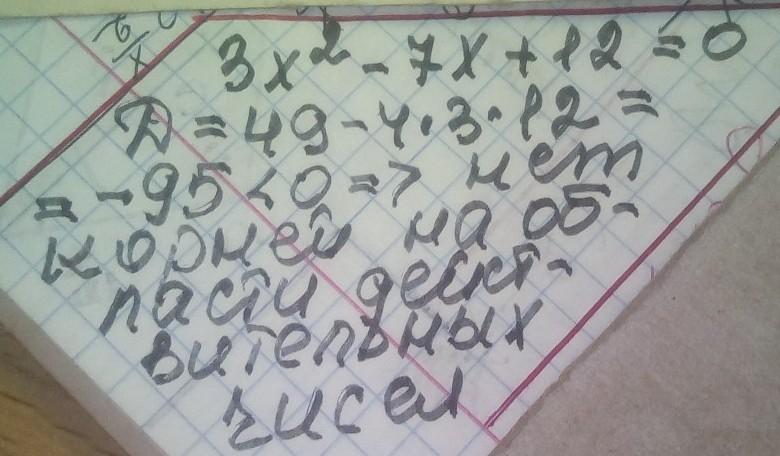 3x² - 7x + 12 = 0
D = 49 - 4·3·12 =
= -95 < 0 => нет
корней на об-
ласти дейст-
вительных
чисел